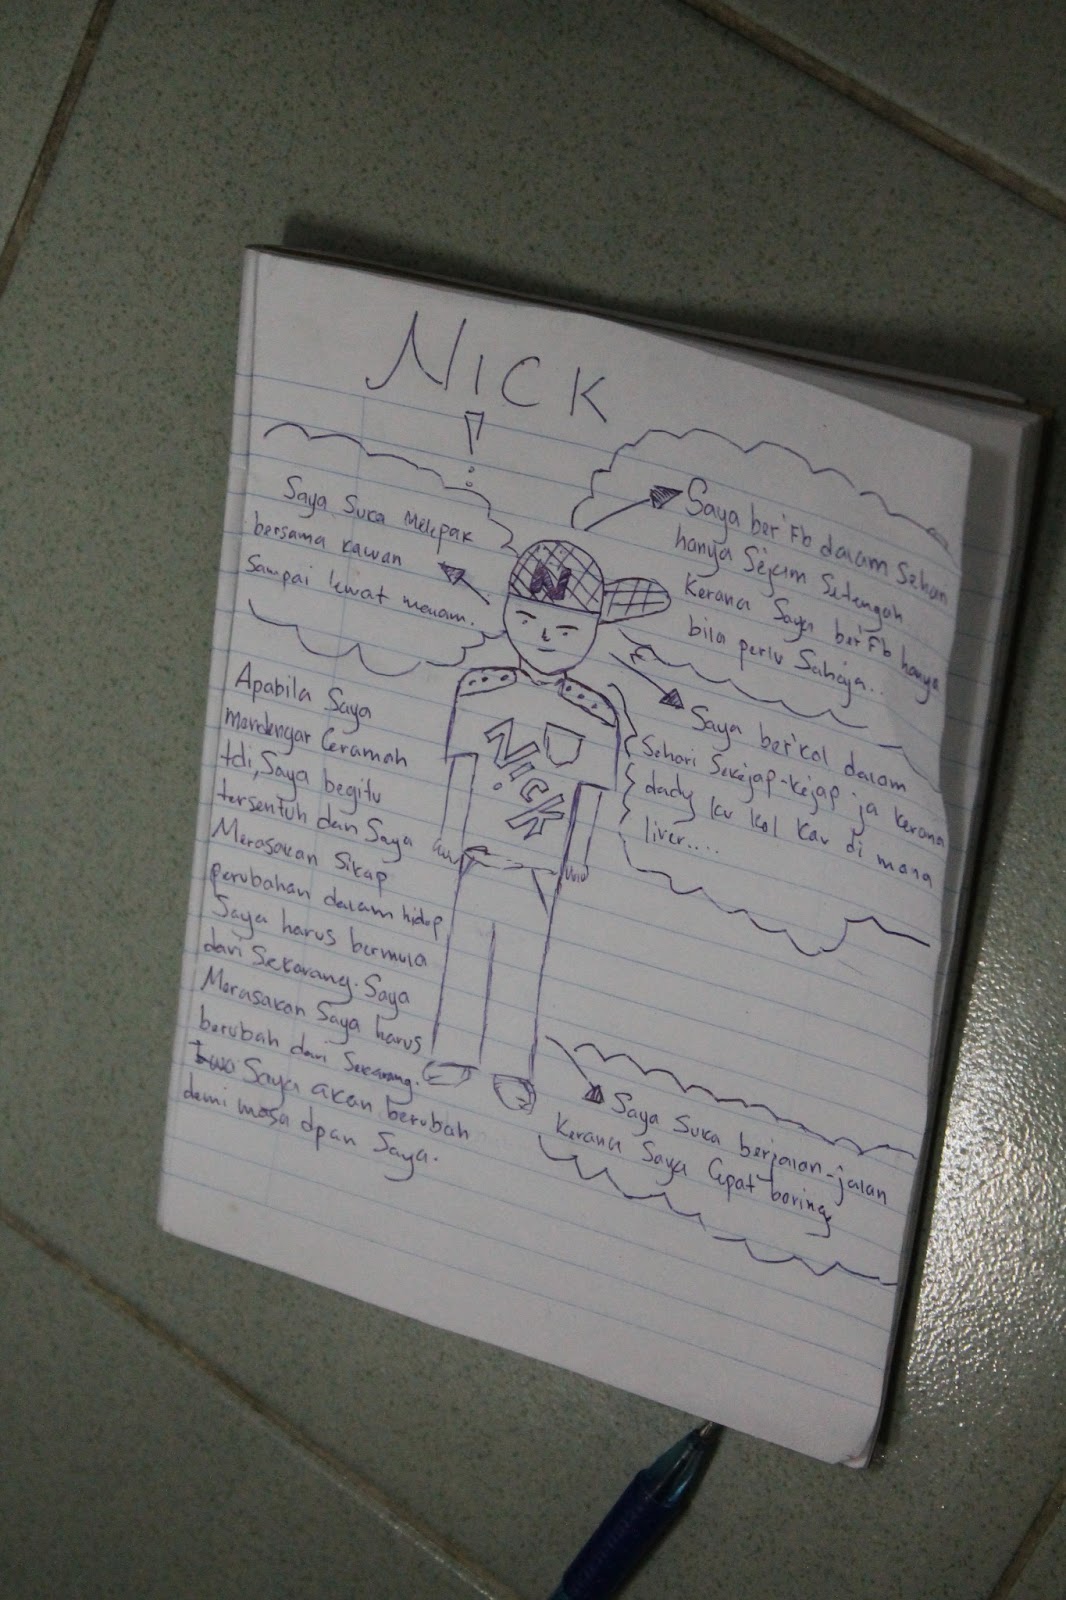 NICK
!
Saya Suka Melepak
bersama kawan
Sampai lewat malam.
Saya ber'Fb dalam Sehari
hanya Sejam Setengah
Kerana Saya ber'Fb hanya
bila perlu Sahaja..
N
NICK
Saya ber'kol dalam
Sehari Sekejap-kejap ja kerana
dady ku kol kau di mana
liver....
Apabila Saya
Mendengar Ceramah
tdi, Saya begitu
tersentuh dan Saya
Merasakan Sikap
perubahan dalam hidup
Saya harus bermula
dari Sekarang. Saya
Merasakan Saya harus
berubah dari Sekarang.
Saya akan berubah
demi masa dpan Saya.
Saya Suka berjalan-jalan
Kerana Saya Cepat boring